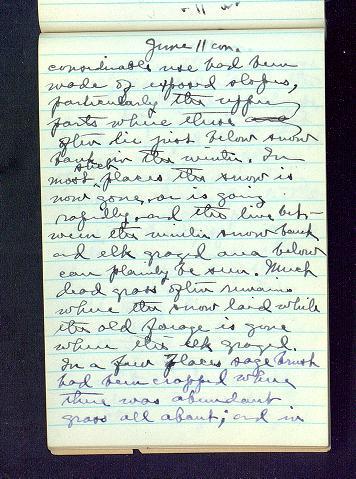 June 11 con.
considerable use had been
made of exposed slopes,
particularly the upper
parts where these
often lie just below snow
bank in the winter. In
most such places the snow is
now gone, or is going
rapidly, and the line bet-
ween the winter snow bank
and elk grazed area below
can plainly be seen. Much
dead grass often remains
where the snow laid while
the old forage is gone
where the elk grazed.
In a few places sage brush
had been cropped where
there was abundant
grass all about; and in